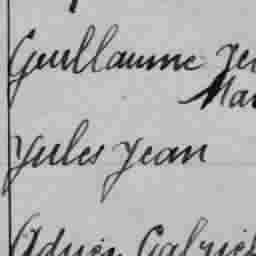 Guillaume Je
Mar
Jules Jean
Adrien Gabriel